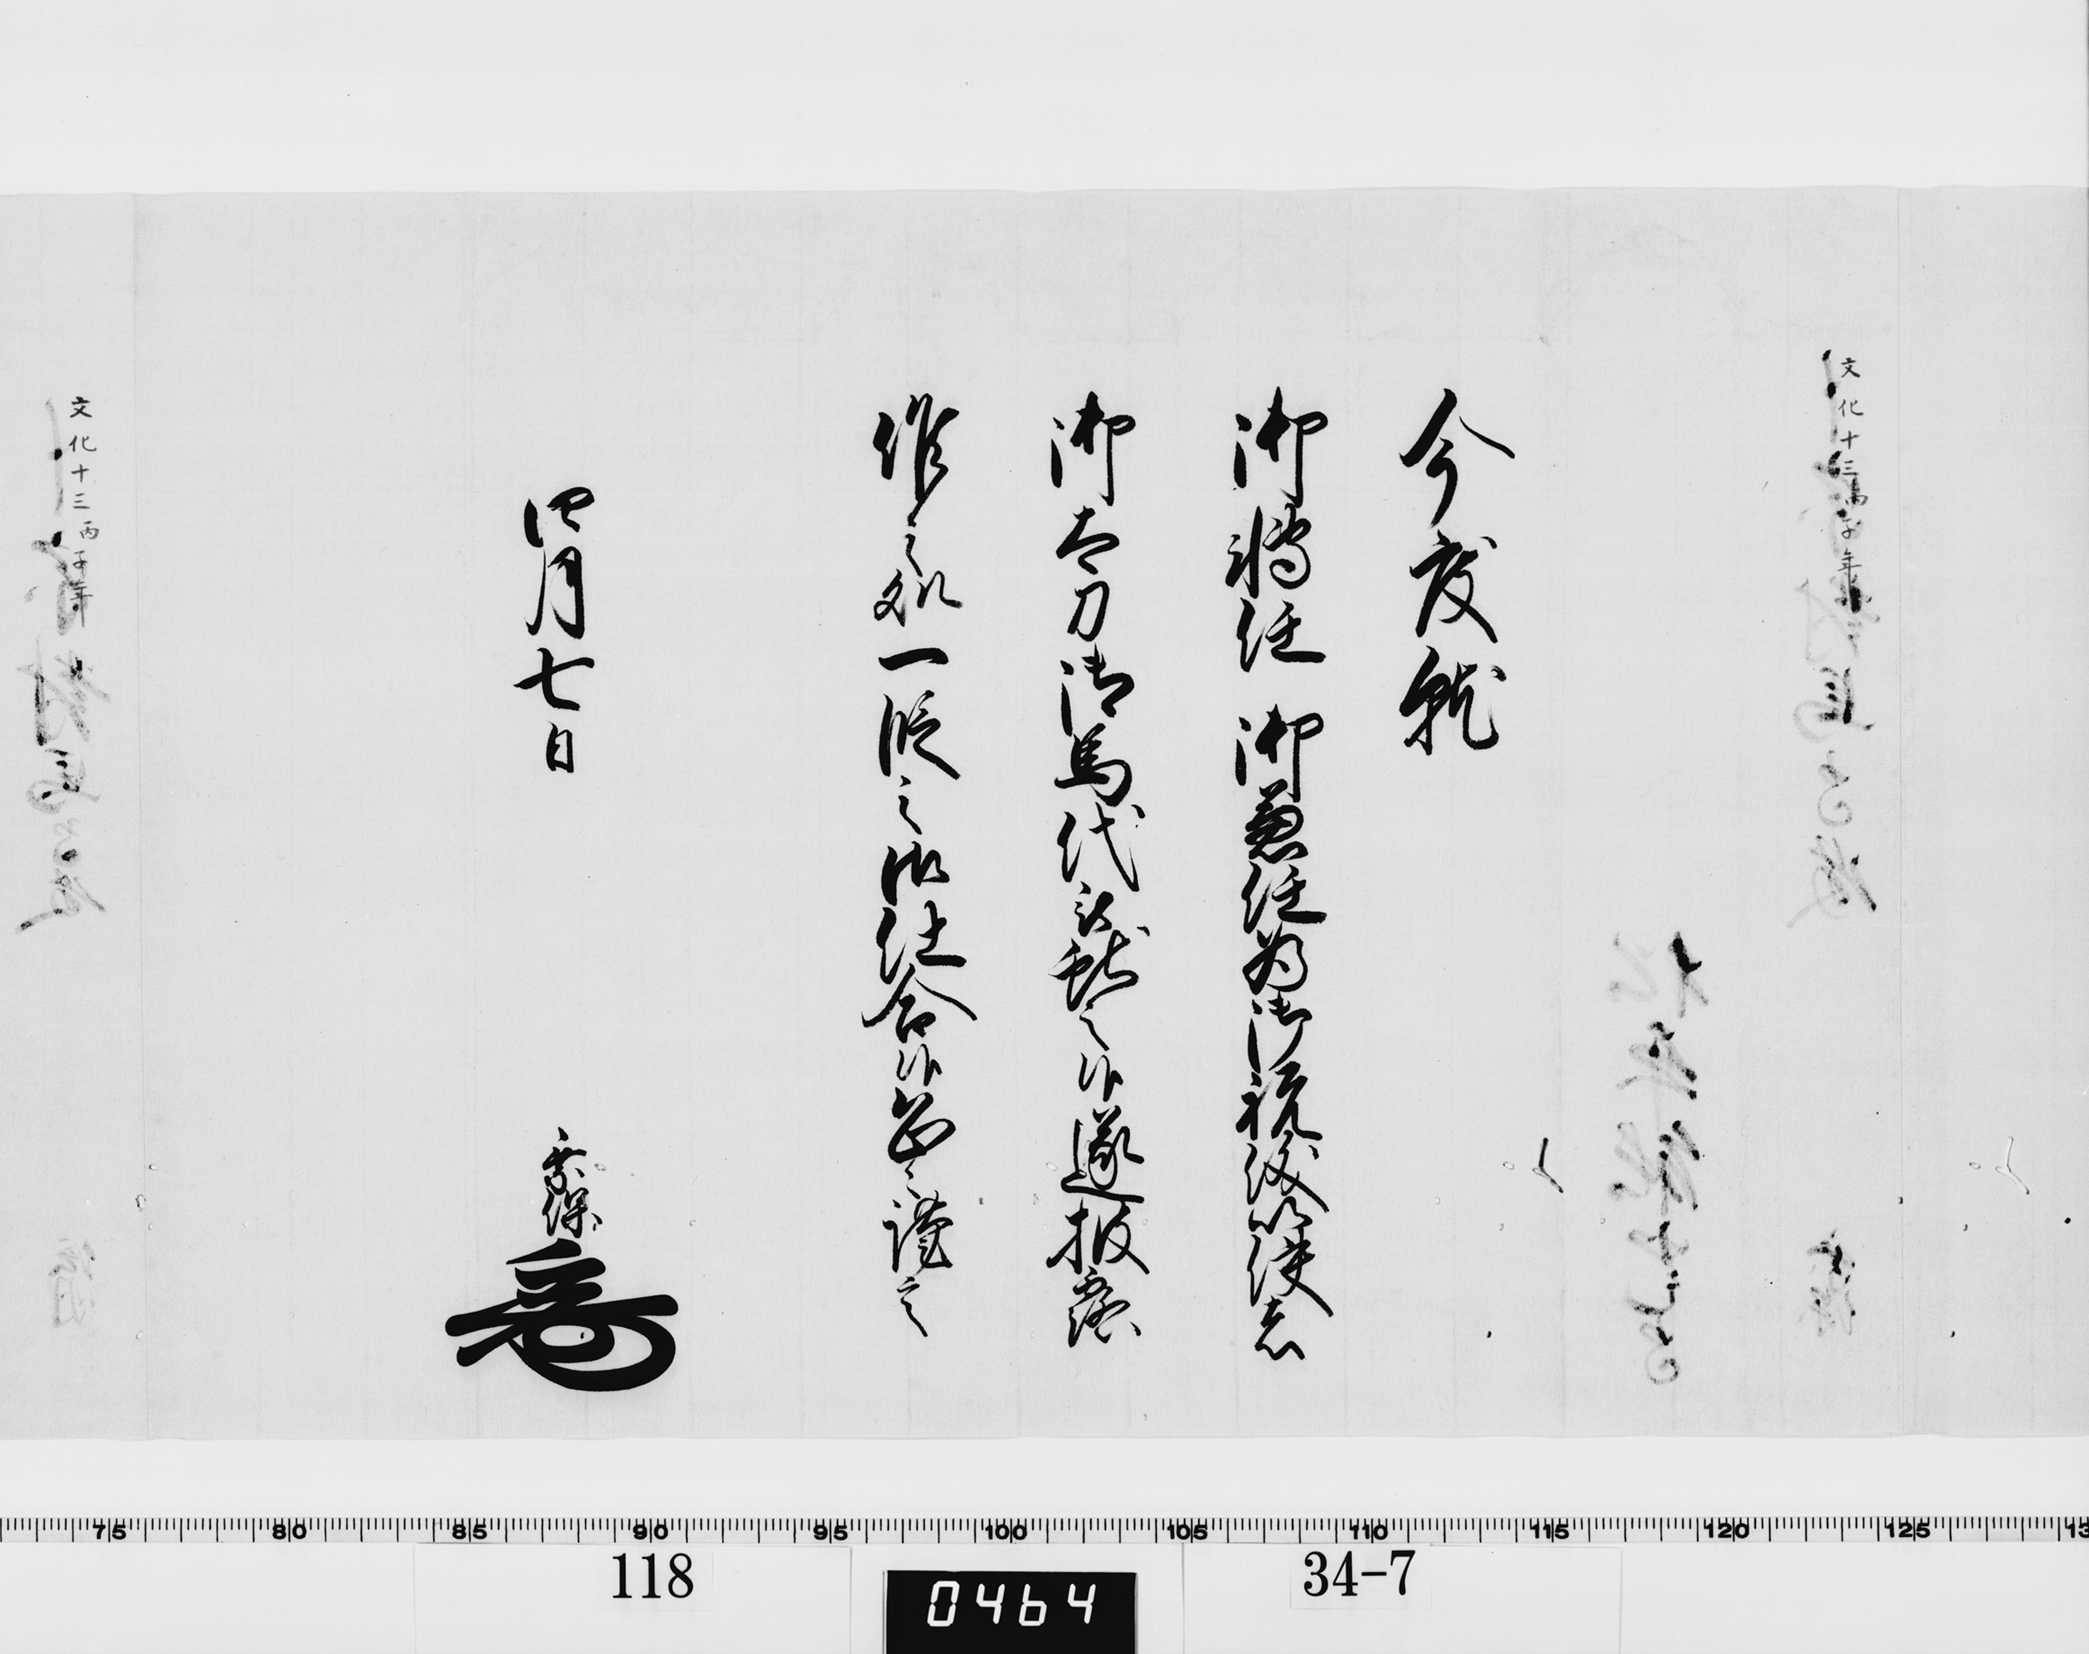 文化十三丙子年
今度就
御轉任 御兼任為御祝儀以使者
御太刀御馬代被献之候遂披露
候之処一段之御仕合候恐々謹言
四月七日
乗保
文化十三丙子年
75 80 85 90 95 100 105 110 115 120 125 13
118
0464
34-7